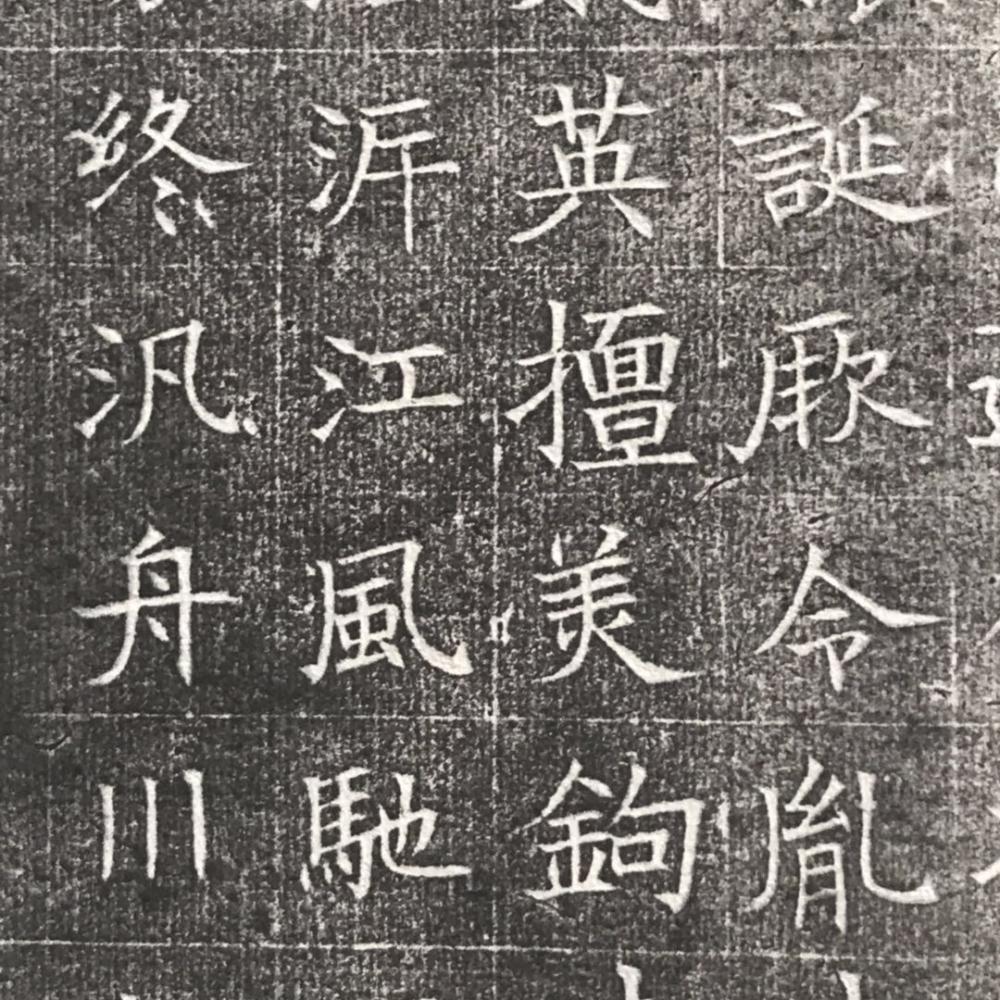 誕厥令胤
英擅美鉤
泝江風馳
終汎舟川